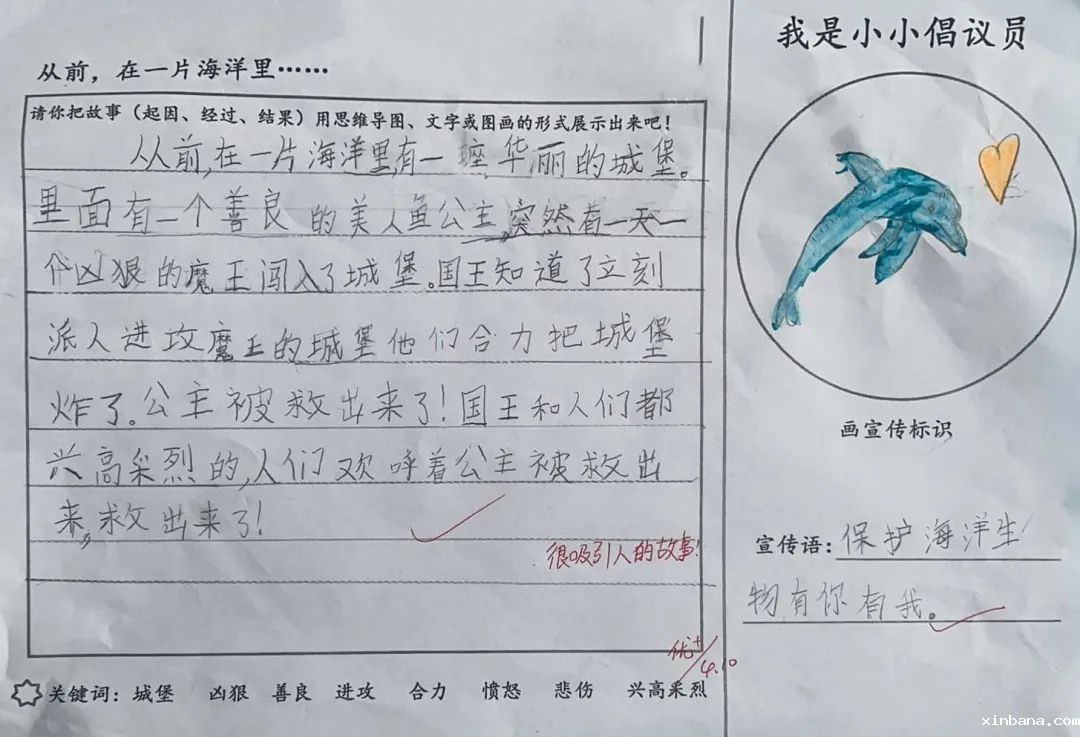 从前，在一片海洋里……
请你把故事（起因、经过、结果）用思维导图、文字或图画的形式展示出来吧！
从前,在一片海洋里,有一座华丽的城堡。
里面有一个善良的美人鱼公主,突然有一天一
个凶狠的魔王闯入了城堡。国王知道了立刻
派人进攻魔王的城堡他们合力把城堡
炸了。公主被救出来了!国王和人们都
兴高采烈的,人们欢呼着公主被救出
来,救出来了!
很吸引人的故事!
优+
4.10
关键词：城堡 凶狠 善良 进攻 合力 愤怒 悲伤 兴高采烈
我是小小倡议员
画宣传标识
宣传语：保护海洋生
物有你有我。
xinbana.com